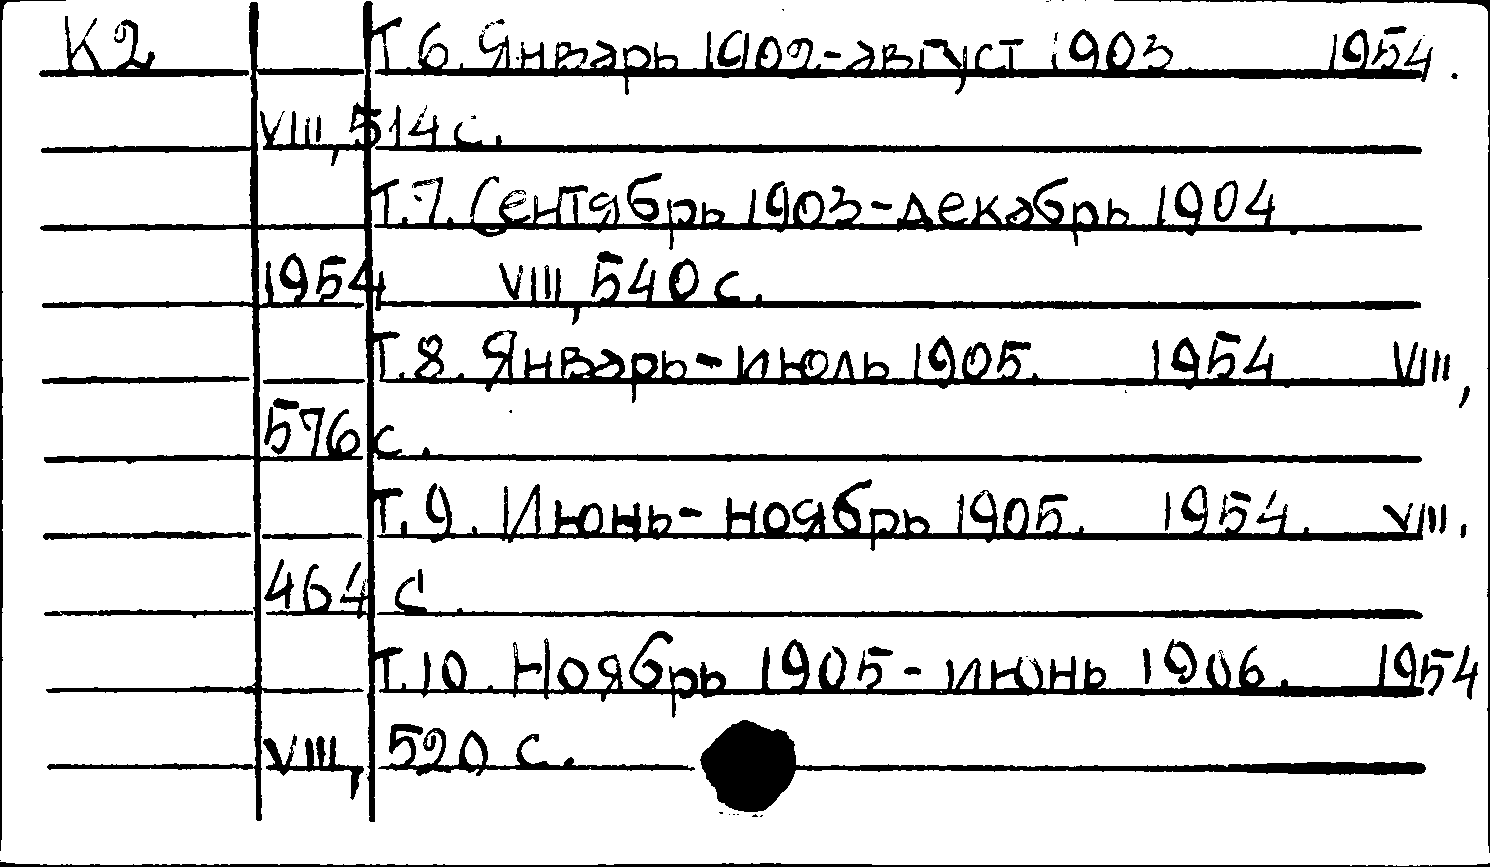 К2 Т.6. Январь 1902-август 1903. 1954.
VIII, 514 с.
Т.7. Сентябрь 1903-декабрь 1904.
1954 VIII, 540 с.
Т.8. Январь-июль 1905. 1954. VIII,
576 с.
Т.9. Июнь-ноябрь 1905. 1954. VIII.
464 с.
Т.10. Ноябрь 1905-июнь 1906. 1954
VIII, 520 с.